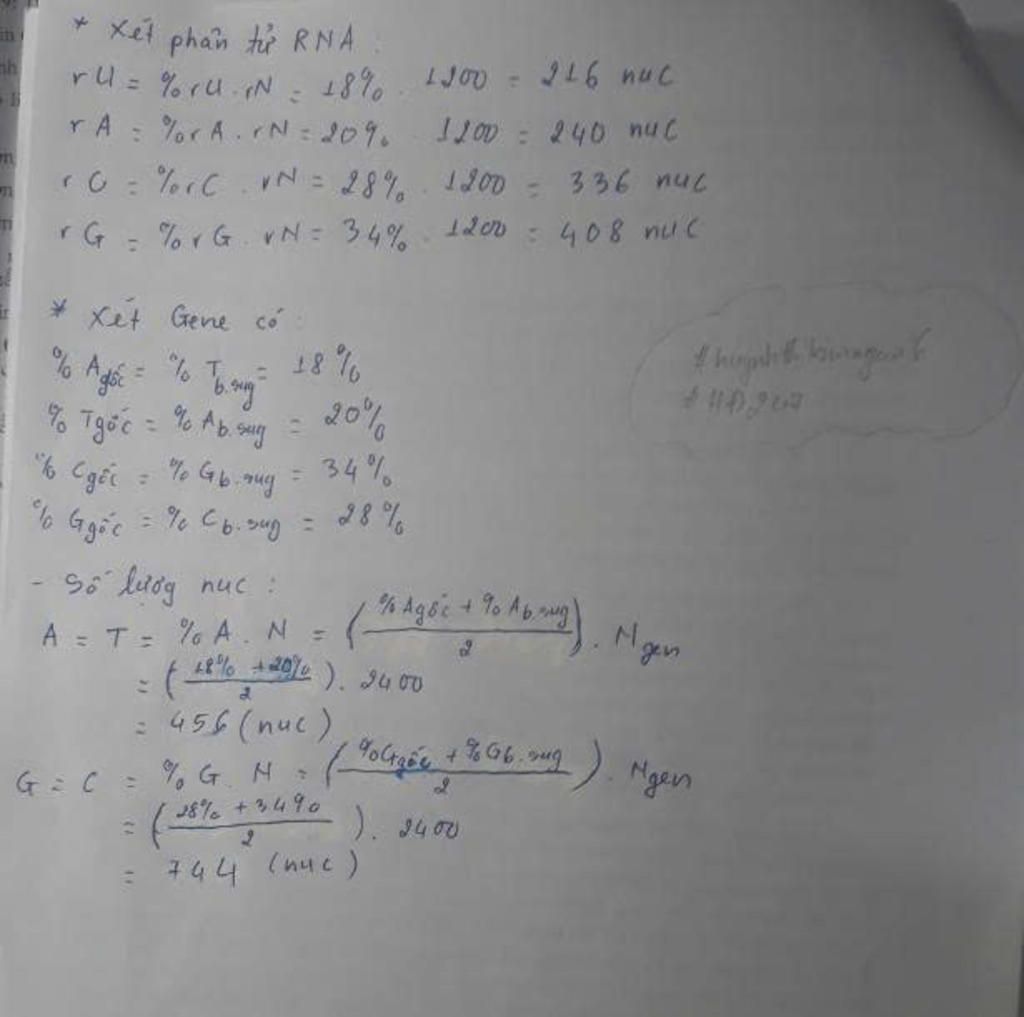 * Xét phân tử RNA.
rU = %rU.rN = 18% . 1200 = 216 nuc
rA = %rA.rN = 20% . 1200 = 240 nuc
rC = %rC . rN = 28% . 1200 = 336 nuc
rG = %rG . rN = 34% . 1200 = 408 nuc
* Xét Gene có :
% Agốc = % Tb.sug = 18%
% Tgốc = % Ab.sug = 20%
% Cgốc = % Gb.sug = 34%
% Ggốc = % Cb.sug = 28%
- Số lượg nuc :
A = T = %A . N = (%Agốc + %Ab.sug / 2) . Ngen
= (18% + 20% / 2) . 2400
= 456 (nuc)
G = C = %G . N = (%Ggốc + %Gb.sug / 2) . Ngen
= (28% + 34% / 2) . 2400
= 744 (nuc)